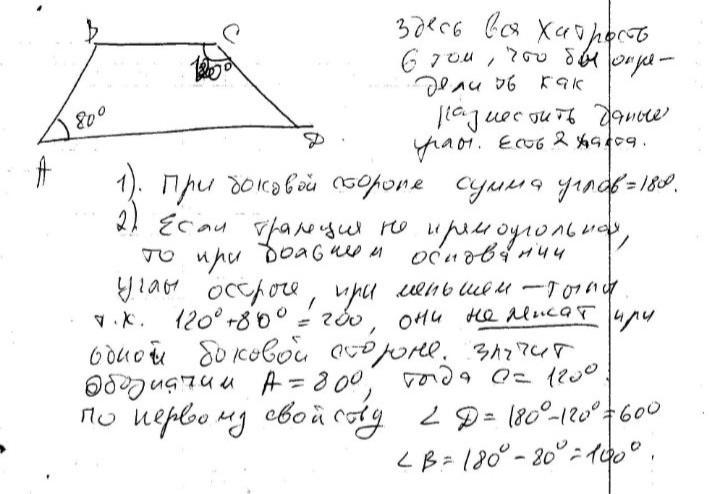 B
C
120°
80°
A
D
Здесь вся хитрость
в том, что бы опре-
делить как
разместить данные
углы. Есть 2 
1). При боковой стороне сумма углов=180.
2) Если трапеция не прямоугольная,
то при большем основании
углы острые, при меньшем – тупые
т.к. 120°+80°=200, они не лежат при
одной боковой стороне. Значит
Обозначим A=80°, тогда C=120°.
По первому свойству ∠D=180°-120°=60°
∠B=180°-80°=100°.